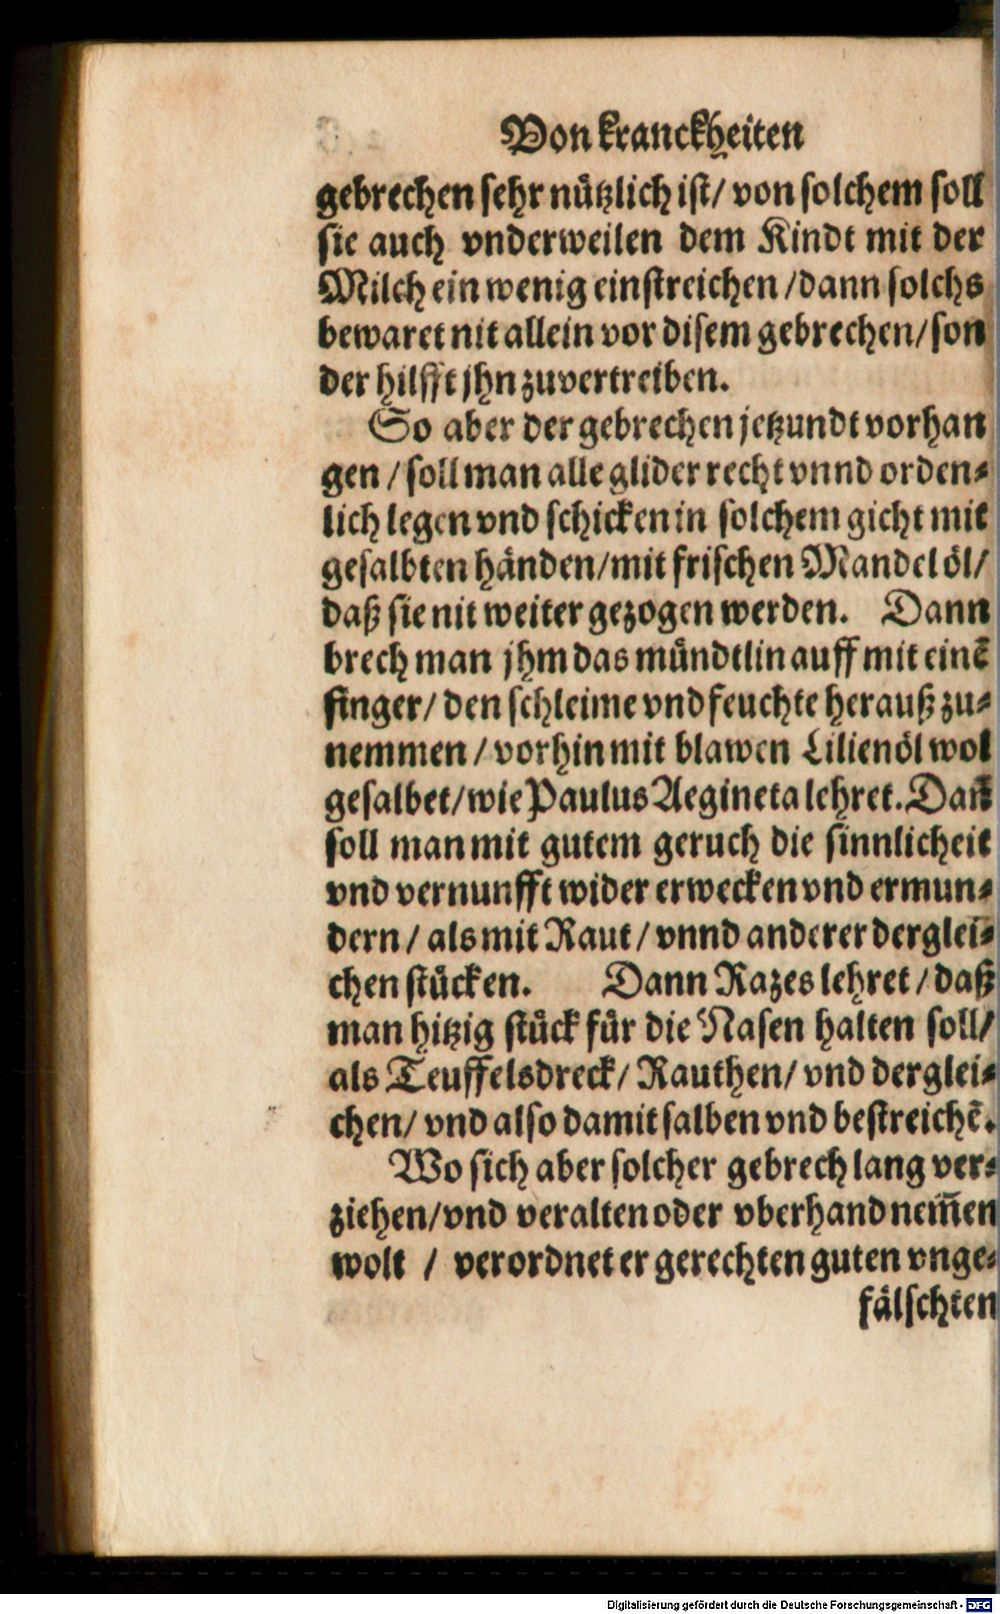 Von kranckheiten
gebrechen sehr nützlich ist/ von solchem soll
sie auch vnderweilen dem Kindt mit der
Milch ein wenig einstreichen/ dann solchs
bewaret nit allein vor disem gebrechen/ son
der hilfft jhn zuvertreiben.
So aber der gebrechen jetzundt vorhan
gen/ soll man alle glider recht vnnd orden-
lich legen vnd schicken in solchem gicht mit
gesalbten händen/ mit frischen Mandelöl/
daß sie nit weiter gezogen werden. Dann
brech man jhm das mündtlin auff mit einē
finger/ den schleime vnd feuchte herauß zu-
nemmen/ vorhin mit blawen Lilienöl wol
gesalbet/ wie Paulus Aegineta lehret. Dañ
soll man mit gutem geruch die sinnlicheit
vnd vernunfft wider erwecken vnd ermun-
dern/ als mit Raut/ vnnd anderer derglei-
chen stücken. Dann Razes lehret/ daß
man hitzig stück für die Nasen halten soll/
als Teuffelsdreck/ Rauthen/ vnd derglei-
chen/ vnd also damit salben vnd bestreichē.
Wo sich aber solcher gebrech lang ver-
ziehen/ vnd veralten oder vberhand nem̃en
wolt / verordnet er gerechten guten vnge-
fälschten
Digitalisierung gefördert durch die Deutsche Forschungsgemeinschaft - DFG